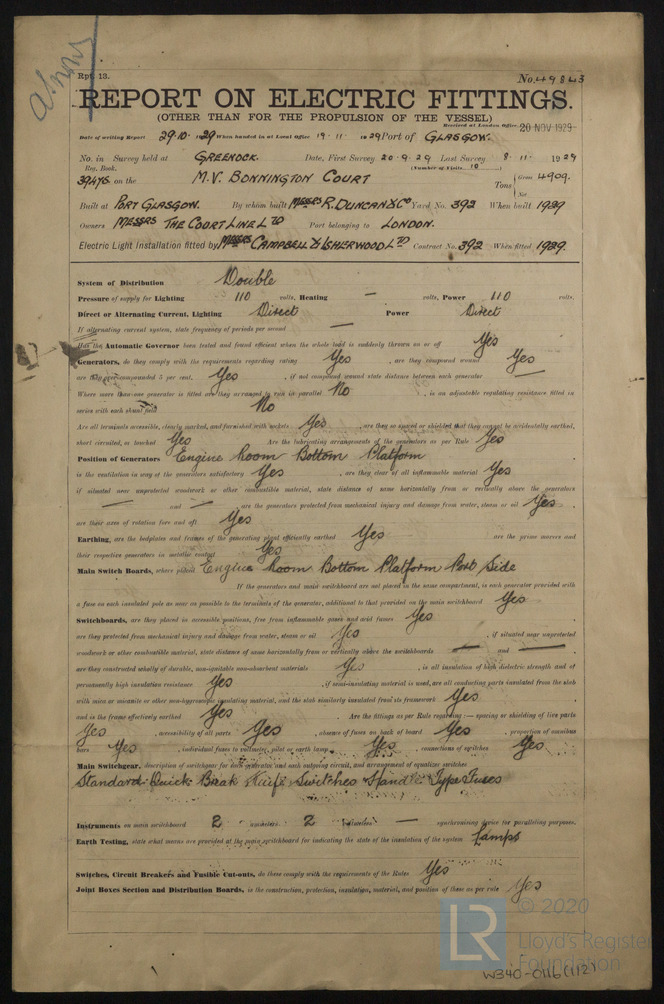 Rpt. 13.
No. 49843
REPORT ON ELECTRIC FITTINGS.
(OTHER THAN FOR THE PROPULSION OF THE VESSEL)
Received at London Office 20 NOV 1929
Date of writing Report 29.10. 1929 When handed in at Local Office 19.11. 1929 Port of GLASGOW.
No. in Survey held at GREENOCK. Date, First Survey 20.9.29 Last Survey 8.11. 1929
Reg. Book. (Number of Visits 10)
39476 on the M.V. BONNINGTON COURT Tons Gross 4909.
Net
Built at PORT GLASGOW. By whom built MESSRS R. DUNCAN & CO Yard No. 392 When built 1929
Owners MESSRS THE COURT LINE LTD Port belonging to LONDON.
Electric Light installation fitted by MESSRS CAMPBELL & ISHERWOOD LTD Contract No. 392 When fitted 1929.
System of Distribution Double
Pressure of supply for Lighting 110 volts, Heating — volts, Power 110 volts.
Direct or Alternating Current, Lighting Direct Power Direct
If alternating current system, state frequency of periods per second —
Has the Automatic Governor been tested and found efficient when the whole load is suddenly thrown on or off Yes
Generators, do they comply with the requirements regarding rating Yes , are they compound wound Yes
are they over compounded 5 per cent. Yes , if not compound wound state distance between each generator —
Where more than one generator is fitted are they arranged to run in parallel No , is an adjustable regulating resistance fitted in
series with each shunt field No
Are all terminals accessible, clearly marked, and furnished with sockets Yes , are they so spaced or shielded that they cannot be accidentally earthed,
short circuited, or touched Yes Are the lubricating arrangements of the generators as per Rule Yes
Position of Generators Engine Room Bottom Platform
is the ventilation in way of the generators satisfactory Yes , are they clear of all inflammable material Yes
if situated near unprotected woodwork or other combustible material, state distance of same horizontally from or vertically above the generators
— and — , are the generators protected from mechanical injury and damage from water, steam or oil Yes ,
are their axes of rotation fore and aft Yes
Earthing, are the bedplates and frames of the generating plant efficiently earthed Yes are the prime movers and
their respective generators in metallic contact Yes
Main Switch Boards, where placed Engine Room Bottom Platform Port Side
If the generators and main switchboard are not placed in the same compartment, is each generator provided with
a fuse on each insulated pole as near as possible to the terminals of the generator, additional to that provided on the main switchboard Yes
Switchboards, are they placed in accessible positions, free from inflammable gases and acid fumes Yes ,
are they protected from mechanical injury and damage from water, steam or oil Yes , if situated near unprotected
woodwork or other combustible material, state distance of same horizontally from or vertically above the switchboards — and — ,
are they constructed wholly of durable, non-ignitable non-absorbent materials Yes , is all insulation of high dielectric strength and of
permanently high insulation resistance Yes , if semi-insulating material is used, are all conducting parts insulated from the slab
with mica or micanite or other non-hygroscopic insulating material, and the slab similarly insulated from its framework Yes ,
and is the frame effectively earthed Yes . Are the fittings as per Rule regarding:— spacing or shielding of live parts
Yes , accessibility of all parts Yes , absence of fuses on back of board Yes , proportion of omnibus
bars Yes , individual fuses to voltmeter, pilot or earth lamp Yes , connections of switches Yes
Main Switchgear, description of switchgear for each generator and each outgoing circuit, and arrangement of equalizer switches
Standard Quick Break Knife Switches & Handle Type Fuses
Instruments on main switchboard 2 ammeters 2 voltmeters — synchronising device for paralleling purposes.
Earth Testing, state what means are provided at the main switchboard for indicating the state of the insulation of the system Lamps
Switches, Circuit Breakers and Fusible Cut-outs, do these comply with the requirements of the Rules Yes
Joint Boxes Section and Distribution Boards, is the construction, protection, insulation, material, and position of these as per rule Yes
LR © 2020
Lloyd's Register
Foundation
W340-0116 (1/2)